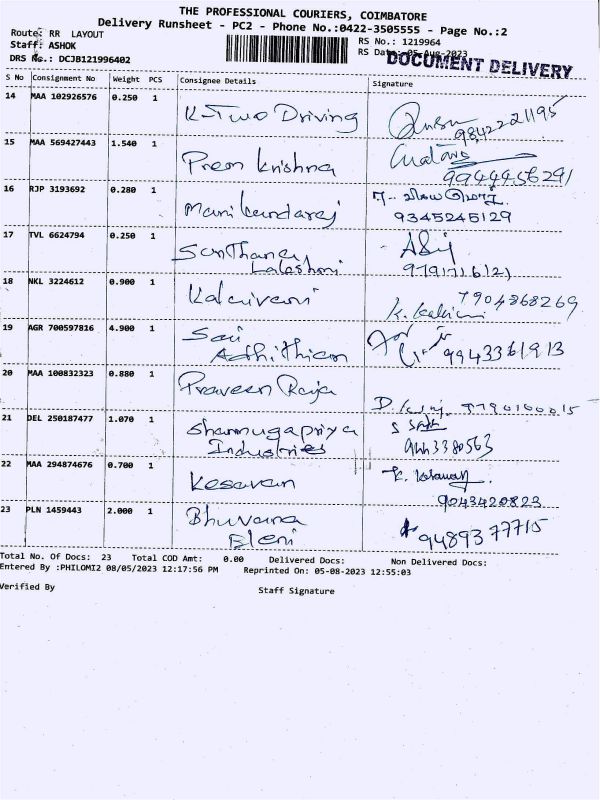 THE PROFESSIONAL COURIERS, COIMBATORE
Delivery Runsheet - PC2 - Phone No.:0422-3505555 - Page No.:2
Route: RR LAYOUT
RS No.: 1219964
Staff: ASHOK
RS Date: 05-Aug-2023
DOCUMENT DELIVERY
DRS No.: DCJB121996402
S No Consignment No Weight PCS Consignee Details Signature
14 MAA 102926576 0.250 1 K-Two Driving
9842221195
15 MAA 569427443 1.540 1 Prem krishna
9944456291
16 RJP 3193692 0.280 1 Manikandaraj
9345245129
17 TVL 6624794 0.250 1 Santhana
Lakshmi
18 NKL 3224612 0.900 1 Kalaivani 7904868269
19 AGR 700597816 4.900 1 Sai for
Adhithian 9943361913
20 MAA 100832323 0.880 1 Praveen Raja
21 DEL 250187477 1.070 1 Shanmugapriya
Industries
22 MAA 294874676 0.700 1 Kesavan
9043420823
23 PLN 1459443 2.000 1 Bhuvana 9489377715
Eleni
Total No. Of Docs: 23 Total COD Amt: 0.00 Delivered Docs: Non Delivered Docs:
Entered By :PHILOMI2 08/05/2023 12:17:56 PM Reprinted On: 05-08-2023 12:55:03
Verified By Staff Signature